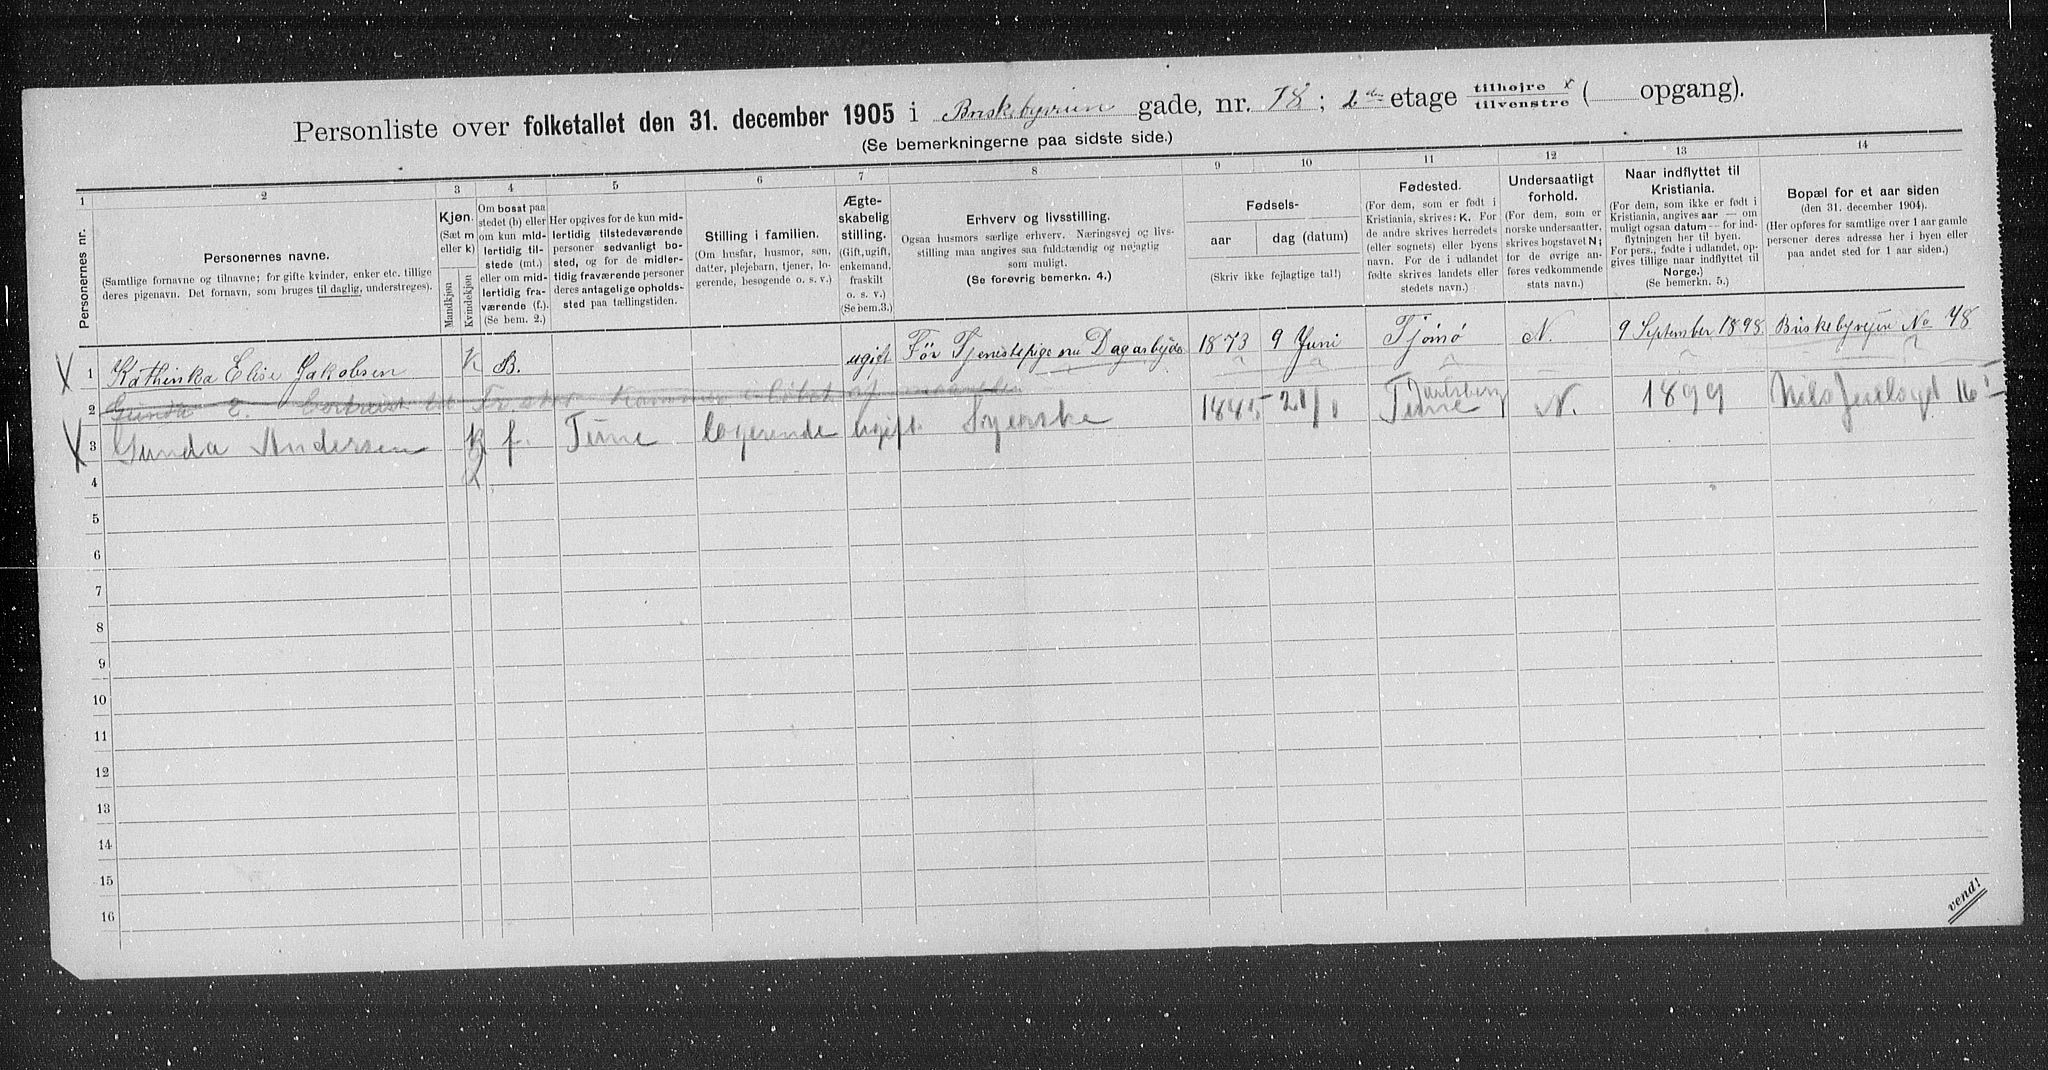 Personliste over folketallet den 31. december 1905 i gade, nr. 78; 2den etage tilhøjre x tilvenstre ( opgang).
(Se bemerkningerne paa sidste side.)
1 2 3 4 5 6 7 8 9 10 11 12 13 14
Personernes nr.
Personernes navne.
(Samtlige fornavne og tilnavne; for gifte kvinder, enker etc. tillige
deres pigenavn. Det fornavn, som bruges til daglig, understreges).
Kjøn.
(Sæt m
eller k)
Mandkjøn
Kvindekjøn
Om bosat paa
stedet (b) eller
om kun mid-
lertidig til-
stede (mt.)
eller om mid-
lertidig fra-
værende (f.).
(Se bem. 2.)
Her opgives for de kun mid-
lertidig tilstedeværende
personer sedvanligt bo-
sted, og for de midler-
tidig fraværende personer
deres antagelige opholds-
sted paa tællingstiden.
Stilling i familien.
(Om husfar, husmor, søn,
datter, plejebarn, tjener, lo-
gerende, besøgende o. s. v.)
Ægte-
skabelig
stilling.
(Gift, ugift,
enkemand,
fraskilt
o. s. v.)
(Se bem. 3.)
Erhverv og livsstilling.
Ogsaa husmors særlige erhverv. Næringsvej og livs-
stilling maa angives saa fuldstændig og nøjagtig
som muligt.
(Se forøvrig bemerkn. 4.)
Fødsels-
aar dag (datum)
(Skriv ikke fejlagtige tal!)
Fødested.
(For dem, som er født i
Kristiania, skrives: K. For
de andre skrives herredets
(eller sognets) eller byens
navn. For de i udlandet
fødte skrives landets eller
stedets navn.)
Undersaatligt
forhold.
(For dem, som er
norske undersaatter,
skrives bogstavet N;
for de øvrige an-
føres vedkommende
stats navn.)
Naar indflyttet til
Kristiania.
(For dem, som ikke er født i
Kristiania, angives aar — om
muligt ogsaa datum — for ind-
flytningen her til byen.
For pers., fødte i udlandet, op-
gives tillige naar indflyttet til
Norge.)
(Se bemerkn. 5.)
Bopæl for et aar siden
(den 31. december 1904).
(Her opføres for samtlige over 1 aar gamle
personer deres adresse her i byen eller
paa andet sted for 1 aar siden.)
X 1 Kathinka Elise Jakobsen K B. ugift Før Tjenestepige nu 1873 9 Juni Tjømø N. 9 September 1898 Buskebyvejen No 48
2
X 3 Gunda Andersen K f. Tune logerende Ugift Syerske 1885 21/1 Tune N. 1899 16
4
5
6
7
8
9
10
11
12
13
14
15
16
vend!